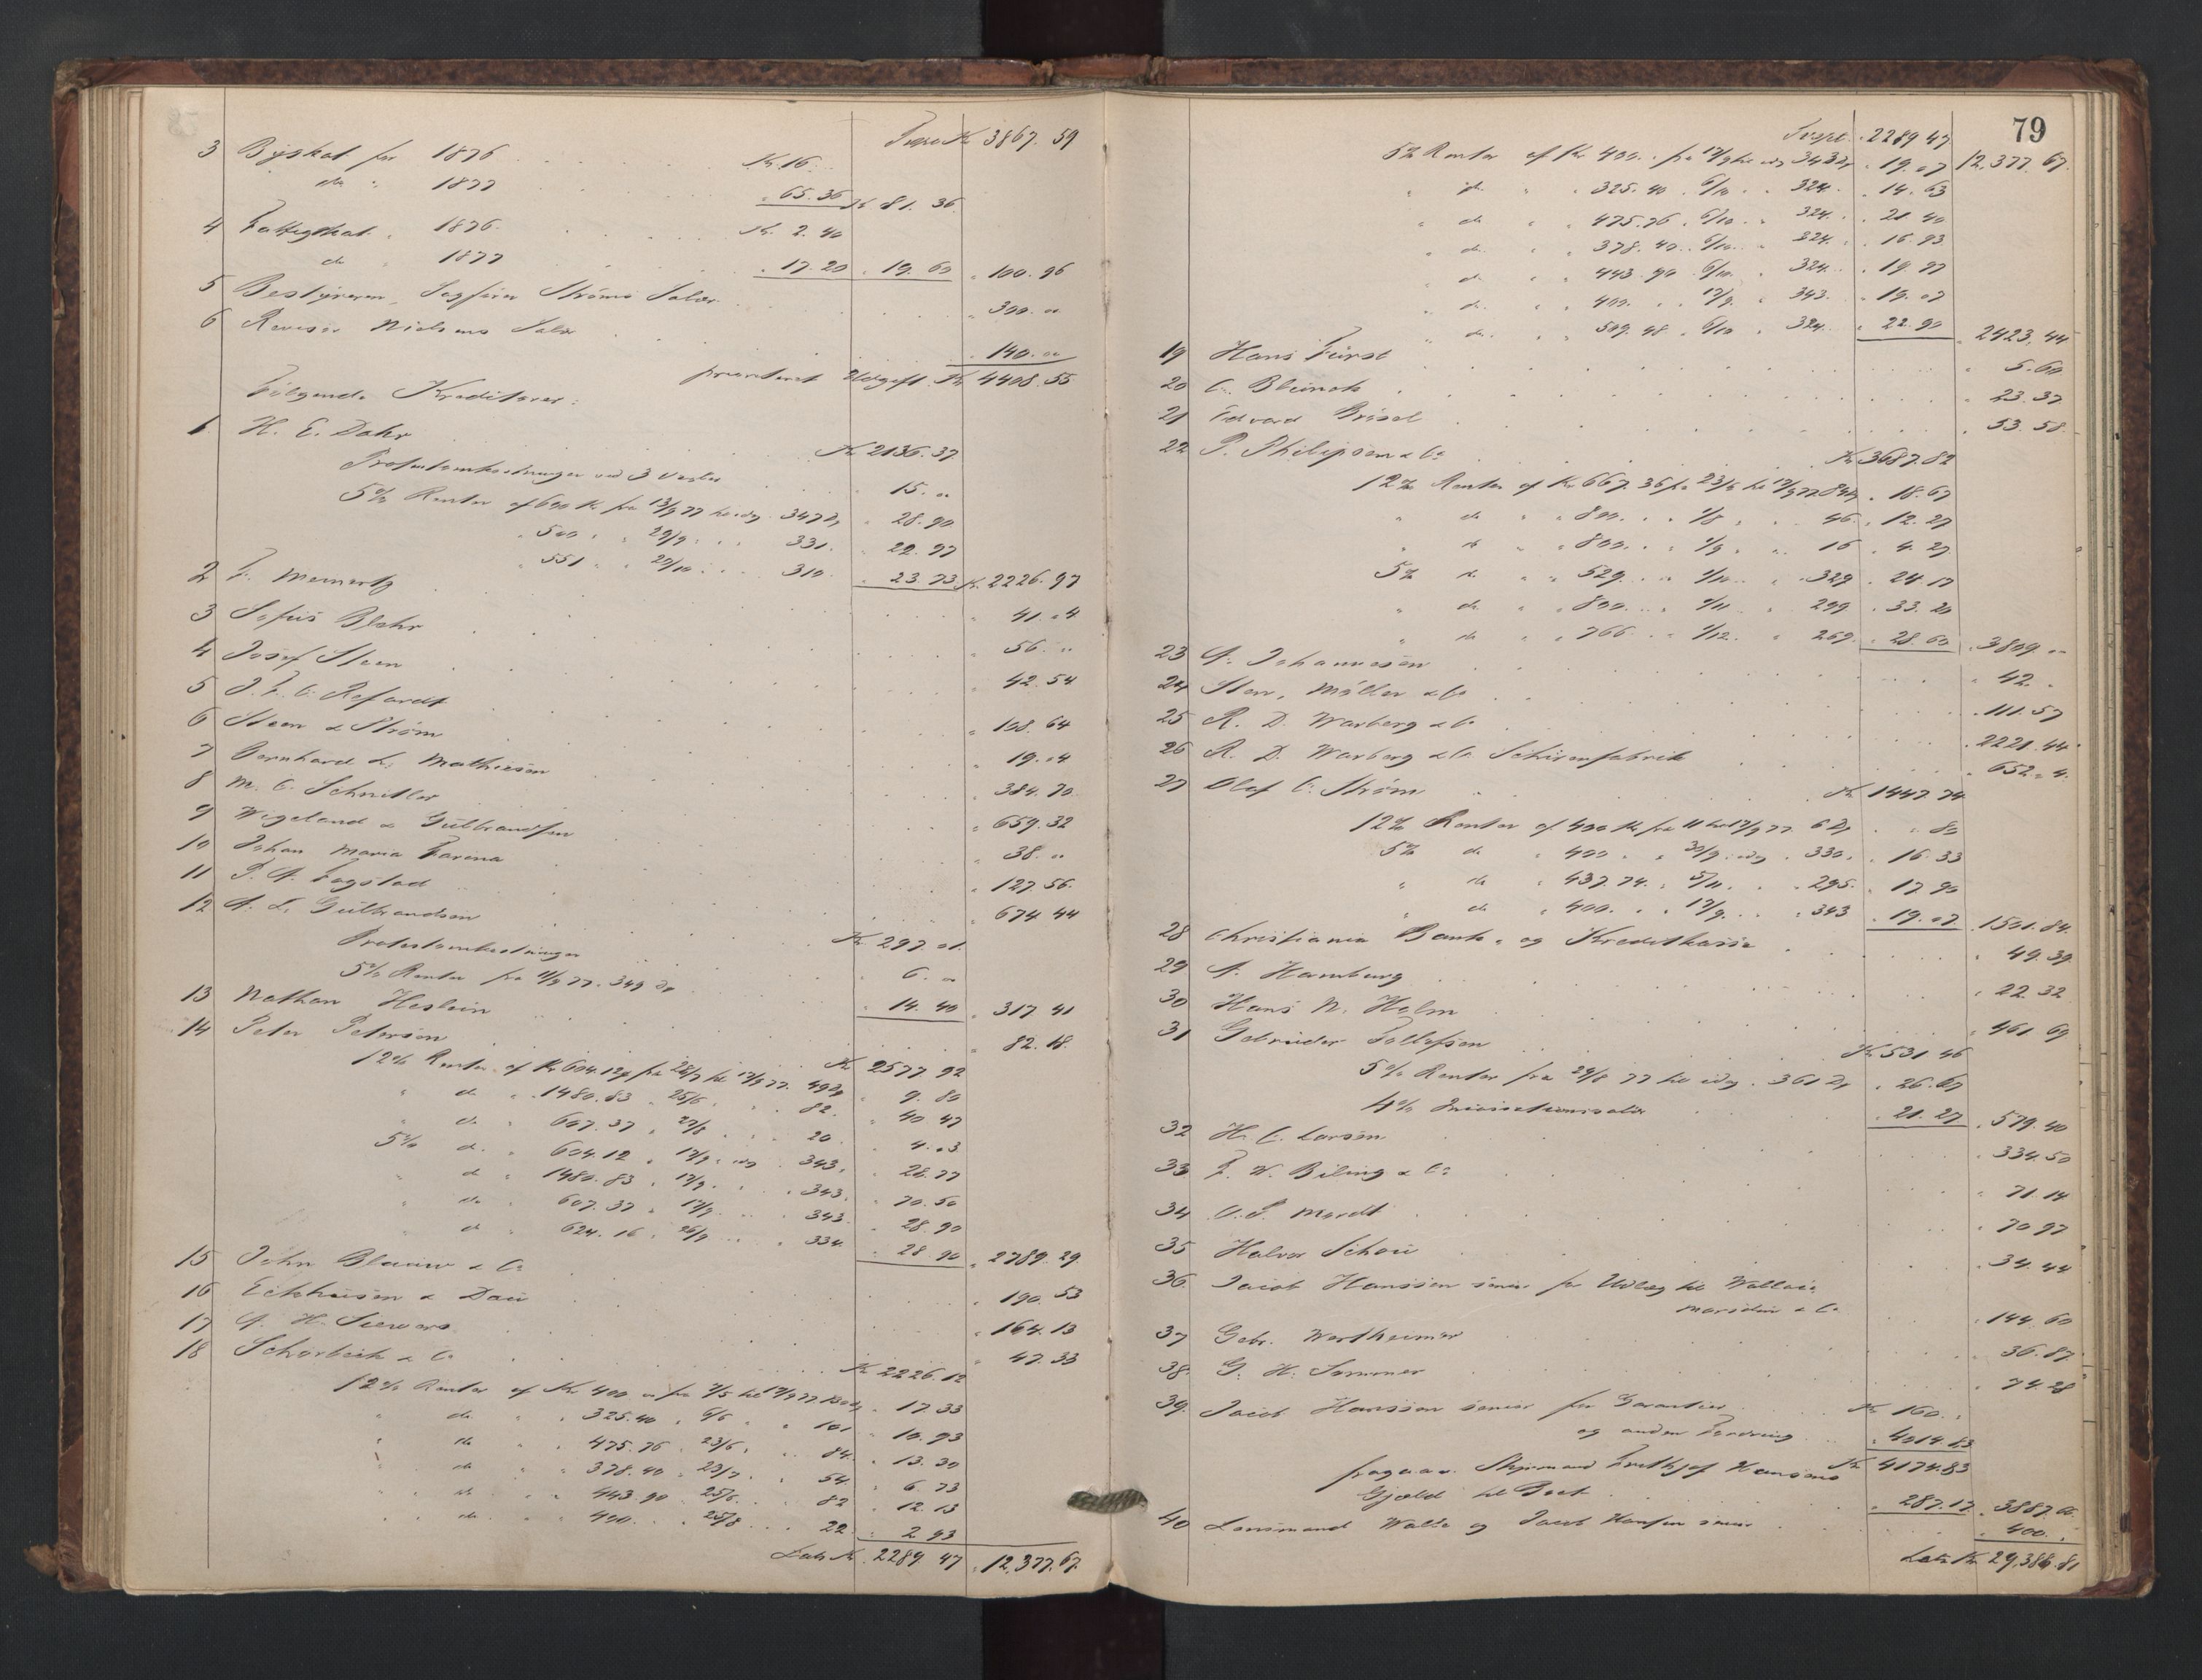 Transp. Kr. 3867. 59
3 Byskat for 1876 Kr. 16.
do " 1877 " 65. 36 Kr. 81. 36
4 Fattigskat " 1876. Kr. 2. 40
do " 1877 " 17. 20 " 19. 60 " 100. 96
5 Bestyreren, Sagfører Strøms Salær " 300. "
6 Revisor Nielsens Salær " 140. "
prioriteret Udgift. Kr. 4408. 55
Følgende Kreditorer:
1. H. E. Dahr Kr. 2136. 37.
Protestomkostninger ved 3 Vexler " 15. "
5% Renter af 600 Kr. fra 13/9 77 til idag 347 Dg " 28. 90
" 500 " " 29/9 " " 331. " 22. 97
" 551 " " 20/10 " " 310 " 23. 73 Kr. 2226. 97
2 F. Meinertz " 41. 04
3 Sofus Blehr " 56. "
4 Josef Steen " 42. 54
5 J. F. C. Refardt " 108. 64
6 Steen & Strøm " 19. 04
7 Bernhard L. Mathiesen " 384. 70
8 M. C. Schnitler " 659. 32
9 Wigeland & Gulbrandsen " 38. "
10 Johan Maria Farina " 127. 56.
11 P. A. Fagstad " 674. 44
12 A. L. Gulbrandsen Kr. 297. 01.
Protestomkostninger 6. "
5% Renter fra 11/9 77. 349 Dg " 14. 40 " 317 41
13 Nathan Heslein " 82. 18.
14 Peter Petersen Kr. 2577 92
12% Renter af Kr. 604.12 fra 28/7 til 17/9 77. 49 Dg " 9. 80
" do " 1480. 83 " 25/6 " " 82. " 40 47
" do " 607. 37 " 27/8 " " 20 " 4. 03
5% do " 604. 12 " 17/9 " idag 343. " 28. 77
" do " 1480. 83 " 17/9 " " 343. " 70. 50
" do " 607. 37 " 17/9 " " 343. " 28. 90
" do " 624. 16 " 26/9 " " 334. " 28. 90 " 2789. 29
15 John Blauw & Co " 190. 53
16 Eckhusen & Dau " 164. 13
17 A. H. Siewers " 47. 33
18 Scharbeck & Co Kr. 2226. 12
12% Renter af Kr. 400 " fra 7/5 til 17/9 77. 130 Dg " 17. 33
" do " " 325. 40 " 6/6 " " 101 " 10. 93
" do " 475. 76 " 23/6 " " 84. " 13. 30
" do " 378. 40 " 23/7 " " 54. " 6. 73
" do " 443. 90 " 25/6 " " 82 " 12. 13
" do " 400. " 25/8 " " 22. " 2 93
Lats Kr. 2289 47 " 12,377. 67.
79
Transpt. " 2289 47 12,377. 67.
5% Renter af Kr. 400. " fra 17/9 til idag 343 Dg " 19. 07
" do " " 325. 40 " 6/10 " " 324. " 14. 63
" do " " 475. 76 " 6/10 " " 324. " 21 40
" do " " 378. 40 " 6/10 " " 324. " 16. 93
" do " " 443. 90 " 6/10 " " 324. " 19. 97
" do " " 400. " 17/9. " 343. " 19. 07
" do " " 509. 48 " 6/10 " 324. " 22. 90 " 2423. 44
19 Hans Fürst " 5. 60
20 C. Blunck " 23. 37
21 Edvard Brösel " 53. 58.
22 P. Philipsen & Co Kr. 3687. 82
12% Renter af Kr. 667. 36 fra 23/6 til 17/9 77. 84 Dg " 18. 67
" do " " 800. " " 1/8 " " 46. " 12. 27
" do " " 800. " " 1/9 " " 16 " 4. 27
5% do " " 529. " " 1/10 " " 329 " 24. 17
" do " " 800. " " 1/11 " 299 " 33. 20
" do " " 766. " " 1/12. " 269. " 28. 60 " 3809. "
23 A. Johannesen " 42. "
24 Sten, Møller & Co " 111. 57
25 R. D. Warberg & Co " 2221. 44
26 R. D. Warberg & Co Schirmfabrik " 652. 04.
27 Olaf C. Strøm Kr. 1447. 74
12% Renter af 400 Kr. fra 11 til 17/9 77. 6 Dg " " 80
5% do " 400 " " 30/9 " idag " 330. " 16. 33
" do " 437. 74. " 5/11. " " 295. " 17. 90
" do " 400. " " 17/9. " " 343 " 19. 07 " 1501. 84.
28 Christiania Bank- og Kreditkasse " 49. 39.
29 A. Hamburg " 22. 32
30 Hans N. Holm " 461 69
31 Gebrüder Tollefsen Kr. 531 46
5% Renter fra 29/8 77 til idag. 361 Dg " 26. 67
4% Incassationssalær " 21. 27 " 579. 40
32 H. C. Larsen " 334. 50
33 F. W. Biling & Co " 71. 14
34 O. P. Mordt " 70 97
35 Halvor Schou " 34. 44
36. Jacob Hanssen senior for Udlæg til Wallace
Marsden & Co " 144. 60
37 Gebr. Wertheimer " 36. 87
38. G. H. Sommer " 74. 28
39. Jacob Hanssen senior for Garantier Kr. 160. "
og anden Fordring " 4014. 83
Kr. 4174. 83
fragaar Frithjof Hansens
Gjæld til Boet " 287. 17 " 3887. 66.
40 Lensmand Walle og Jacob Hansen senior " 400. "
Lats Kr. 29,386. 81